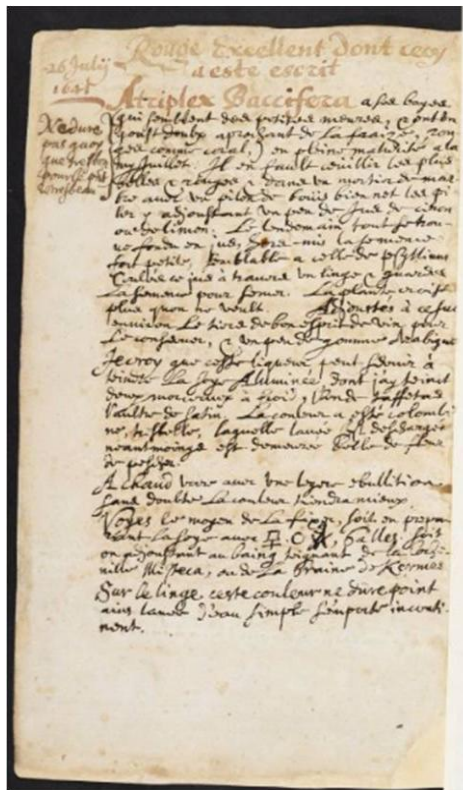 Rouge Excellent dont cecy
a este escrit
26 Julij
1641
Atriplex Baccifera a ses bayes
Ne dure
pas quoy
que tres
pour le
qui semblent des petites meures, & ont un
goust doulx aprochant de la fraize, rou
ges comme coral, en pleine maturité a la
my Juillet. Il en fault cueillir les plus
belles & rouges & dans un mortier de mar
bre avec un pilon de bouis bien net les pi
ler y adjoustant un peu de jus de citron
ou de limon. Le lendemain tout se trou
ve fondu en jus, hors mis la semence
fort petite, semblable a celle de psyllium
Coulés ce jus à travers un linge & gardés
La semence pour semer. La plante croist
plus qu'on ne veult. Adjoustés à ce suc
environ le tiers de bon esprit de vin pour
le conserver, & un peu de gomme Arabique
Je croy que ceste liqueur peut servir à
teindre la soye Aluminée dont jay teinct
deux morceaux à froid, l'un de taffetas
l'aultre de satin. La couleur a esté colombi
ne, laquelle lavée s'est deschargée
neantmoings est demeurée belle de fleur
de pescher.
A chaud voire avec une legere ebullition
sans doubte la couleur tiendra mieux.
Voyés le moyen de la fixer, soit en prepa
rant la soye avec galles, soit
en adjoustant au baing teignant de la coche
nille Misteca, ou de la graine de Kermes
Sur le linge ceste couleur ne dure point
ains lavée d'eau simple s'emporte inconti
nent.